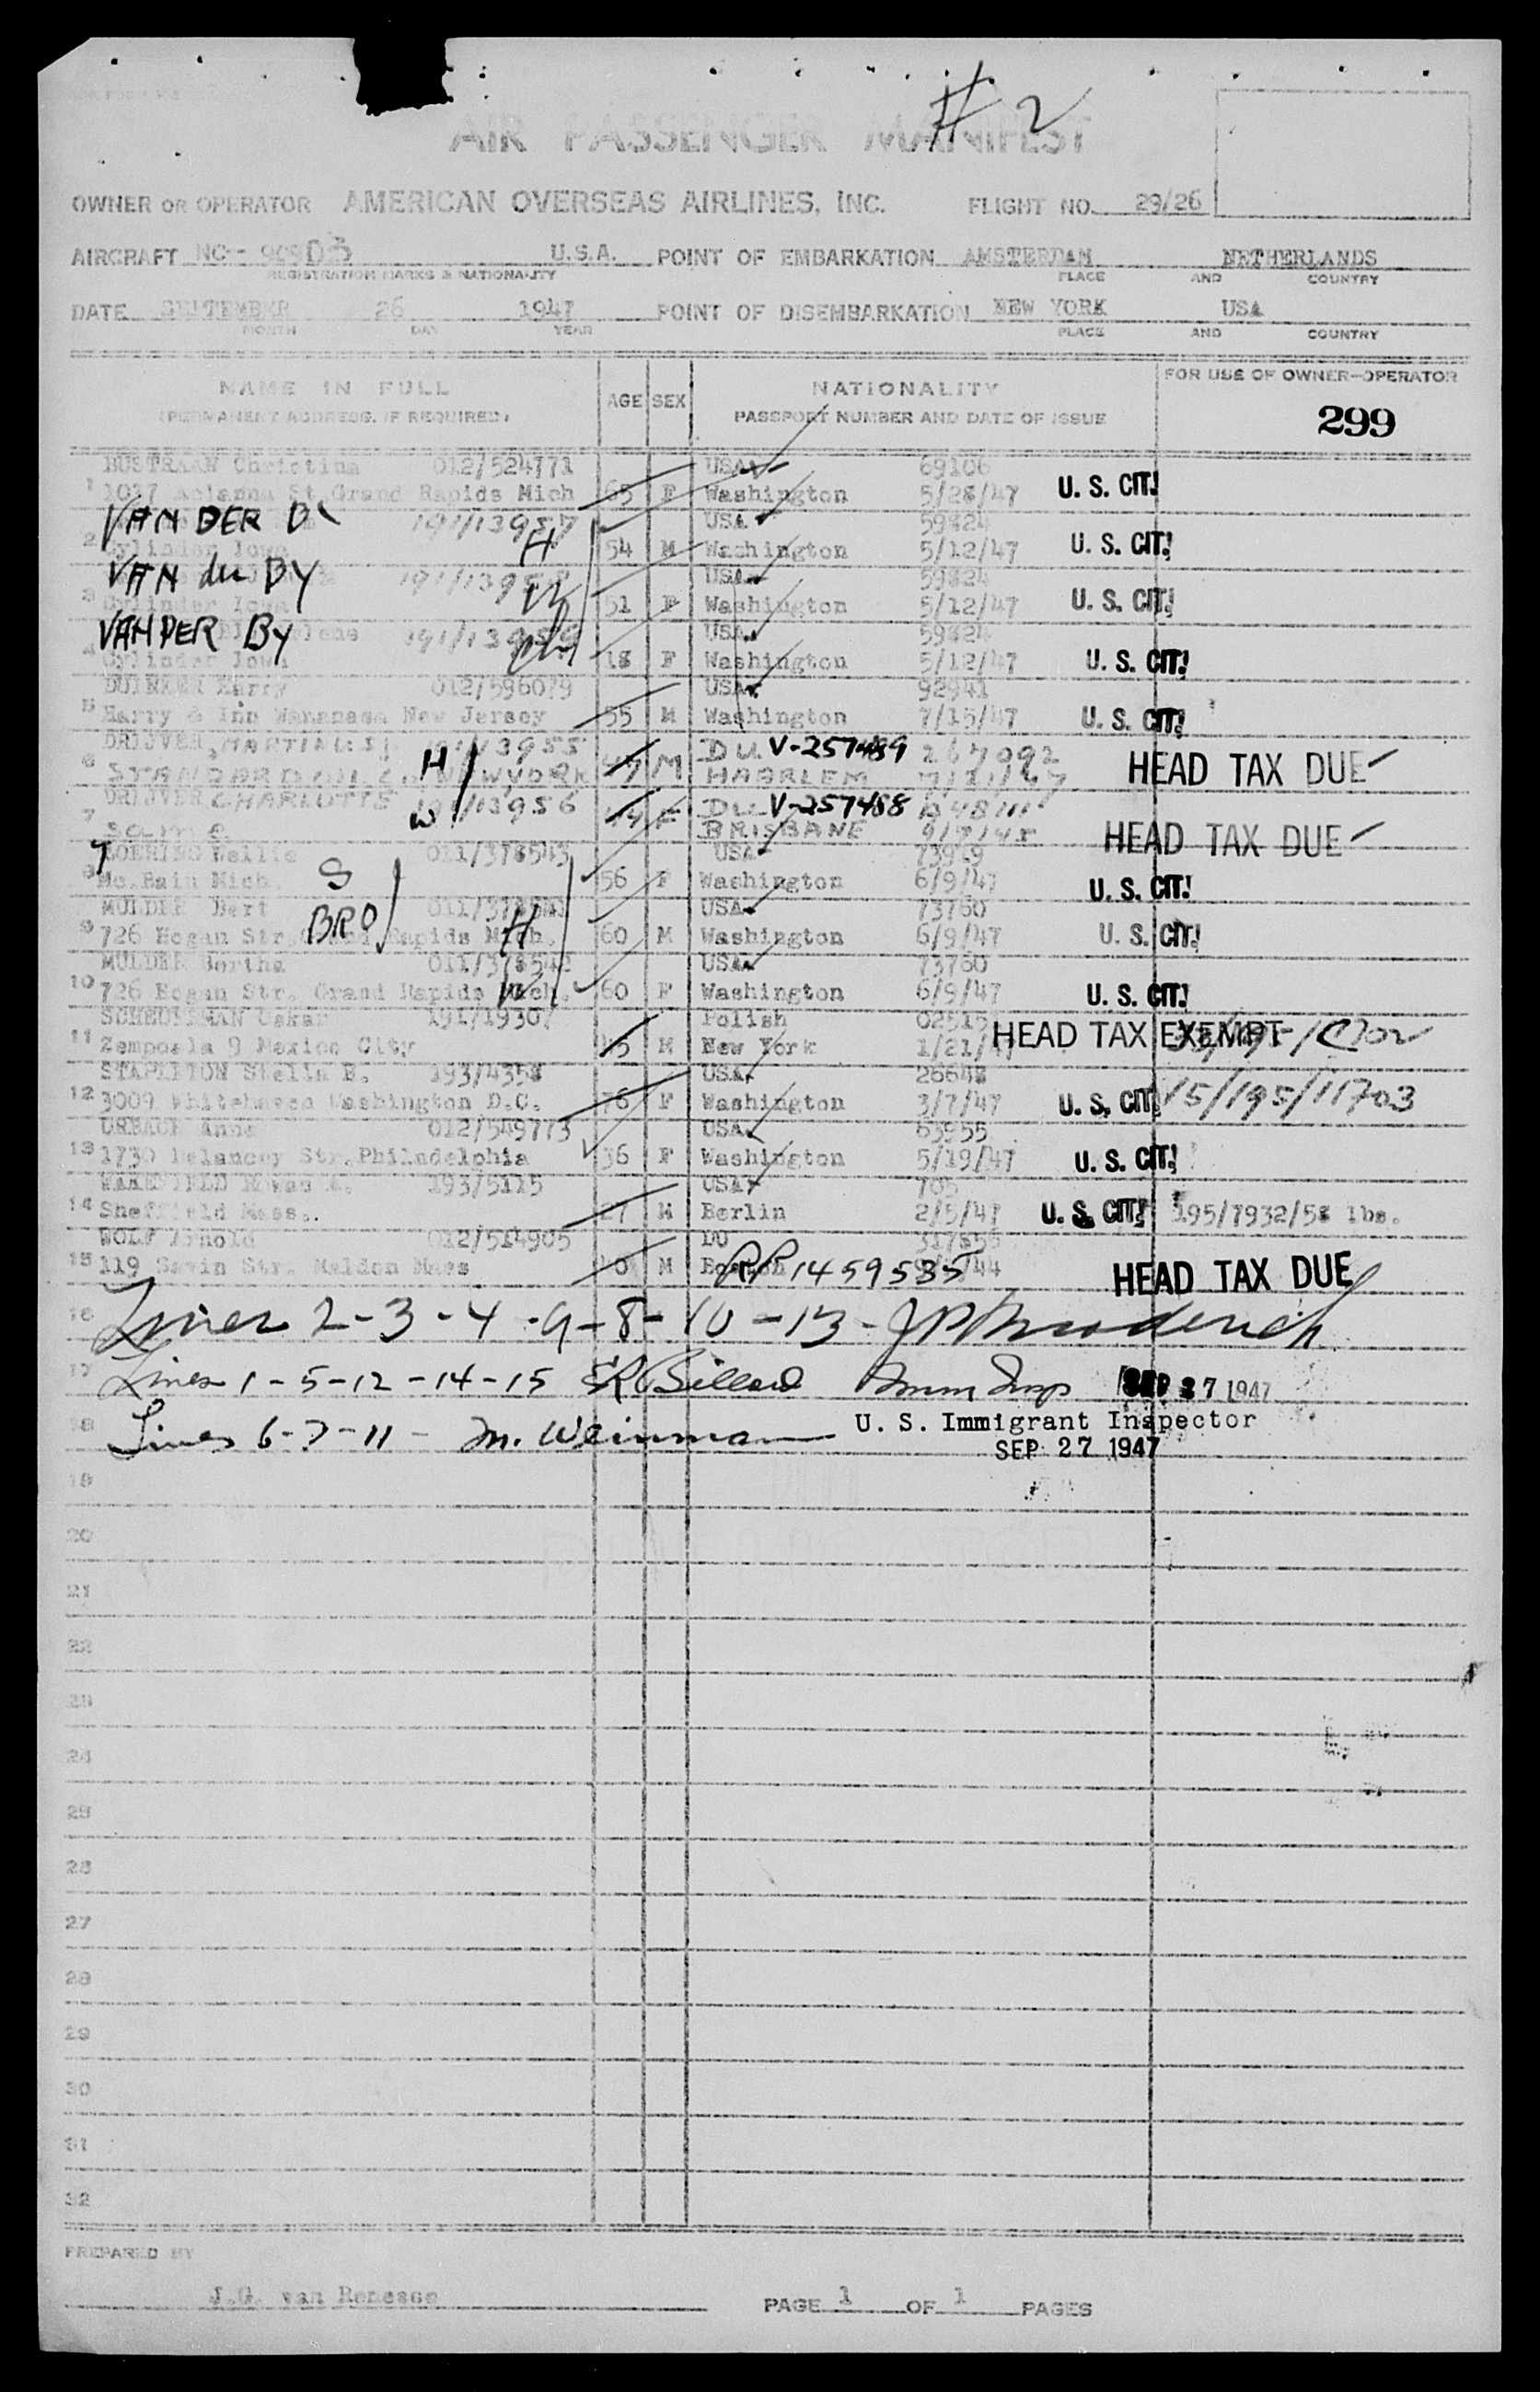 # 2
AIR PASSENGER MANIFEST
OWNER OR OPERATOR AMERICAN OVERSEAS AIRLINES, INC. FLIGHT NO. 29/26
AIRCRAFT NC - 90903 U.S.A. POINT OF EMBARKATION AMSTERDAM NETHERLANDS
REGISTRATION MARKS & NATIONALITY PLACE AND COUNTRY
DATE SEPTEMBER 26 1947 POINT OF DISEMBARKATION NEW YORK USA
MONTH DAY YEAR PLACE AND COUNTRY
NAME IN FULL AGE SEX NATIONALITY FOR USE OF OWNER-OPERATOR
(PERMANENT ADDRESS, IF REQUIRED) PASSPORT NUMBER AND DATE OF ISSUE
299
BUSTRAAN Christina 012/524771 USA 69106
1 1017 St. Grand Rapids Mich 65 F Washington 5/28/47 U. S. CIT.
VAN DER 191/13957 USA 59824
2 Cylinder Iowa H 54 M Washington 5/12/47 U. S. CIT.
VAN der BY 191/13958 USA 59824
3 Cylinder Iowa W 51 F Washington 5/12/47 U. S. CIT.
VANDER BY 191/13959 USA 59824
4 Cylinder Iowa ch 18 F Washington 5/12/47 U. S. CIT.
Harry 012/596079 USA 92941
5 Harry & Inn New Jersey 55 M Washington 7/15/47 U. S. CIT.
DRIJVER, MARTINUS 191/13955 DU. V-257489 267092
6 STANDARD OIL CO NEW YORK H 47 M HAARLEM HEAD TAX DUE
DRIJVER CHARLOTTE 191/13956 DU V-257488
7 W 44 F BRISBANE HEAD TAX DUE
Nellie 011/378543 USA 73989
8 Mc. Bain Mich. S 56 F Washington 6/9/47 U. S. CIT.
MULDER Bert USA 73760
9 726 Hogan Str. Grand Rapids Mich. BRO H 60 M Washington 6/9/47 U. S. CIT.
MULDER Bertha 011/378542 USA 73760
10 726 Hogan Str. Grand Rapids Mich. W 60 F Washington 6/9/47 U. S. CIT.
Oskar 191/1930 Polish
11 Zempoala 9 Mexico City 45 M New York HEAD TAX EXEMPT
STAPLETON Stella B. 193/4358 USA 26648
12 3009 Whitehaven Washington D.C. 76 F Washington 3/7/47 U. S. CIT. 15/195/11703
URBACH Anne 012/549773 USA 63955
13 1730 Delancey Str. Philadelphia 36 F Washington 5/19/47 U. S. CIT.
WAKEFIELD 193/5115 USA 705
14 Sheffield Mass. 27 M Berlin 2/5/47 U. S. CIT. 195/7932/58 lbs.
WOLF Arnold 012/514905 DU
15 119 Savin Str. Maldon Mass M RP 1459585 HEAD TAX DUE
16 Lines 2-3-4-9-8-10-13-
17 Lines 1-5-12-14-15 Billard Imm Insp SEP 27 1947
18 Lines 6-7-11 - M. Weinman U. S. Immigrant Inspector
SEP 27 1947
19
20
21
22
23
24
25
26
27
28
29
30
31
32
PREPARED BY
J.G. van Renesse PAGE 1 OF 1 PAGES